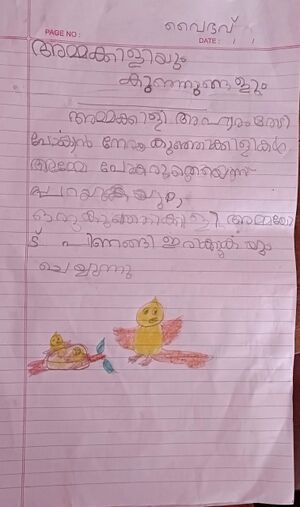 വൈദവ്
PAGE NO :
DATE : / /
അമ്മക്കിളിയും
കുഞ്ഞുങ്ങളും
അമ്മക്കിളി ആഹാരം തേടി
പോകാൻ നേരം കുഞ്ഞിക്കിളികൾ
അമ്മേ പോകരുതെയെന്ന്
പറയുകയും,
ഒരു കുഞ്ഞിക്കിളി അമ്മയോ
ട് പിണങ്ങി ഇരിക്കുകയും
ചെയ്യുന്നു